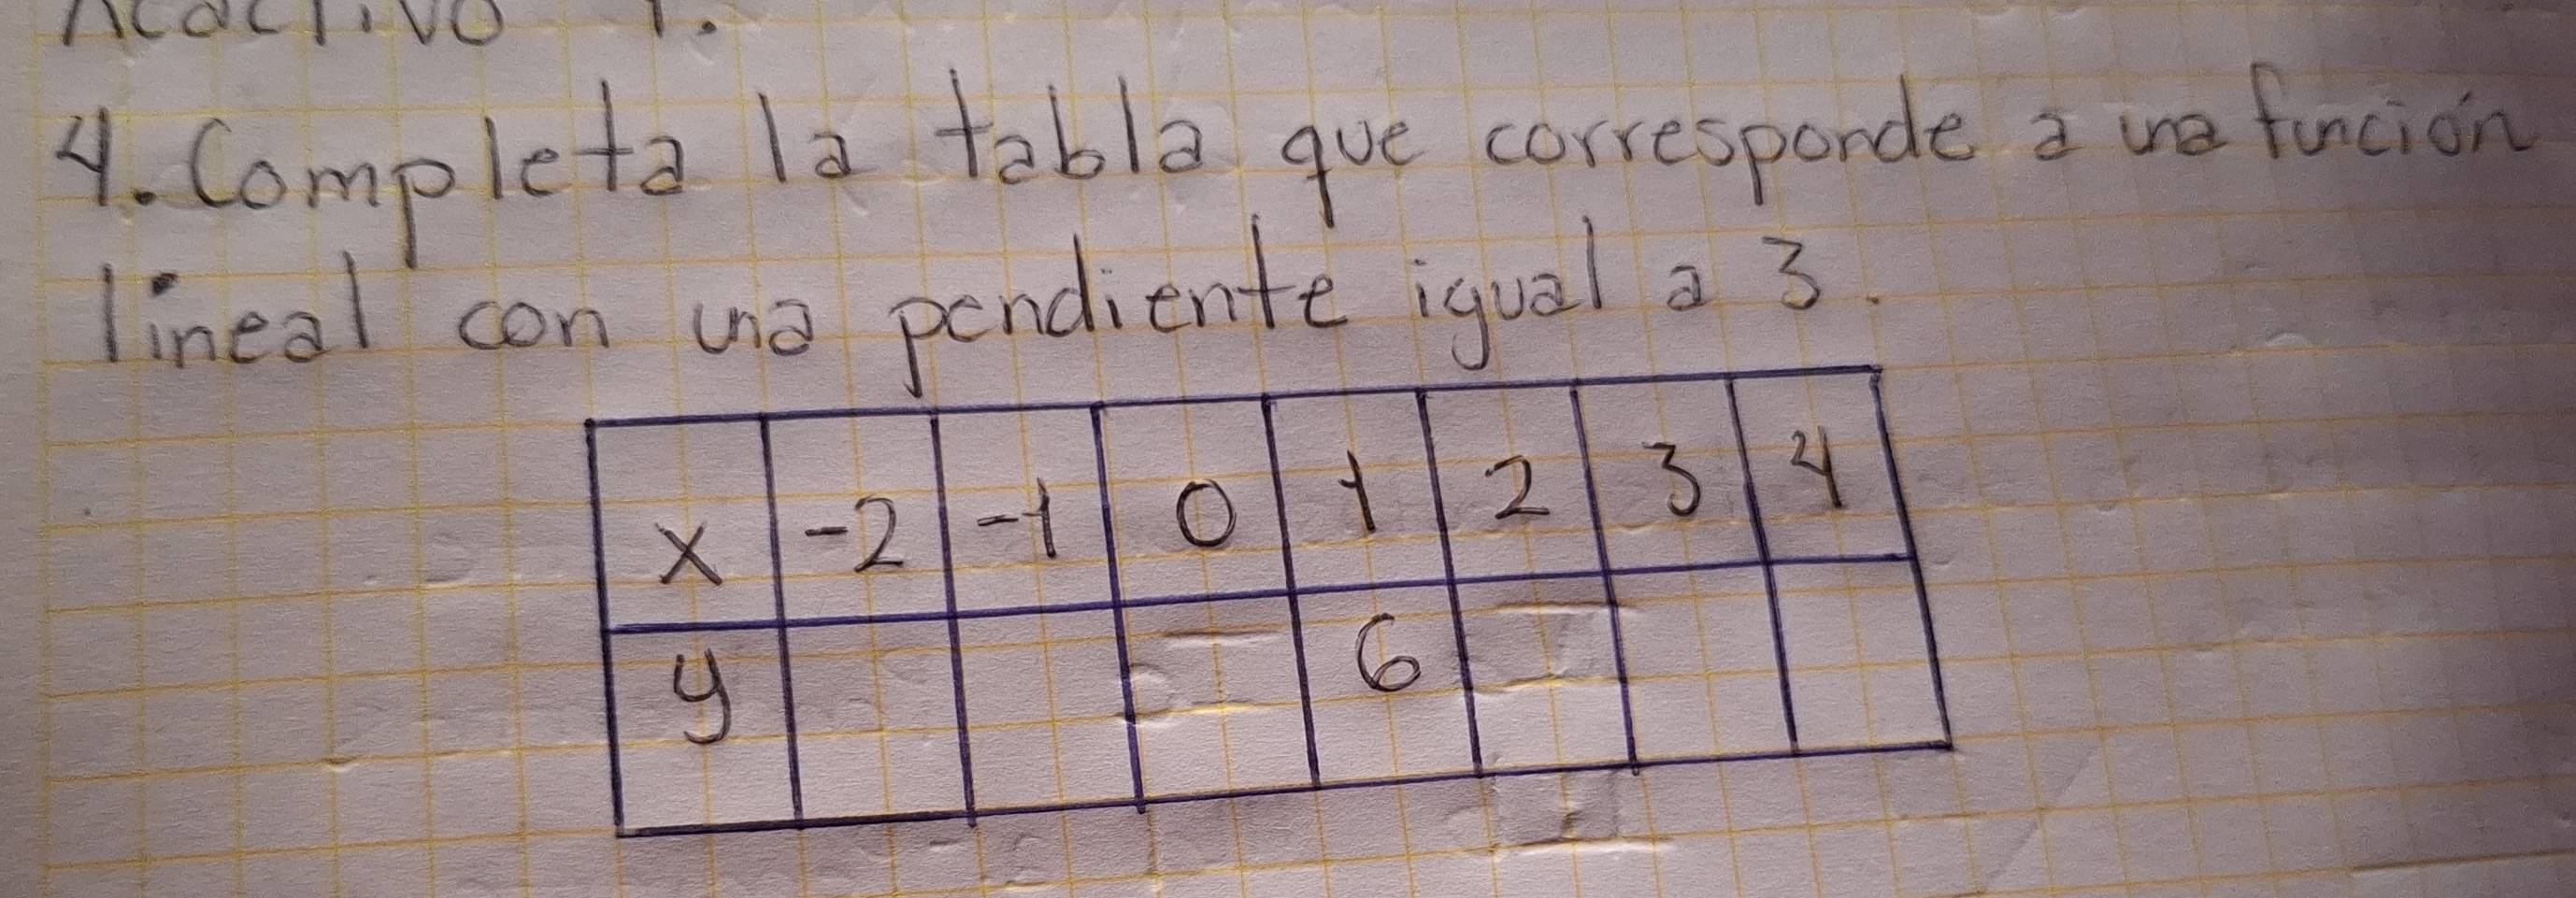 Reactivo 1.
4. Completa la tabla que corresponde a una función
lineal con una pendiente igual a 3.
x -2 -1 0 1 2 3 4
y 6